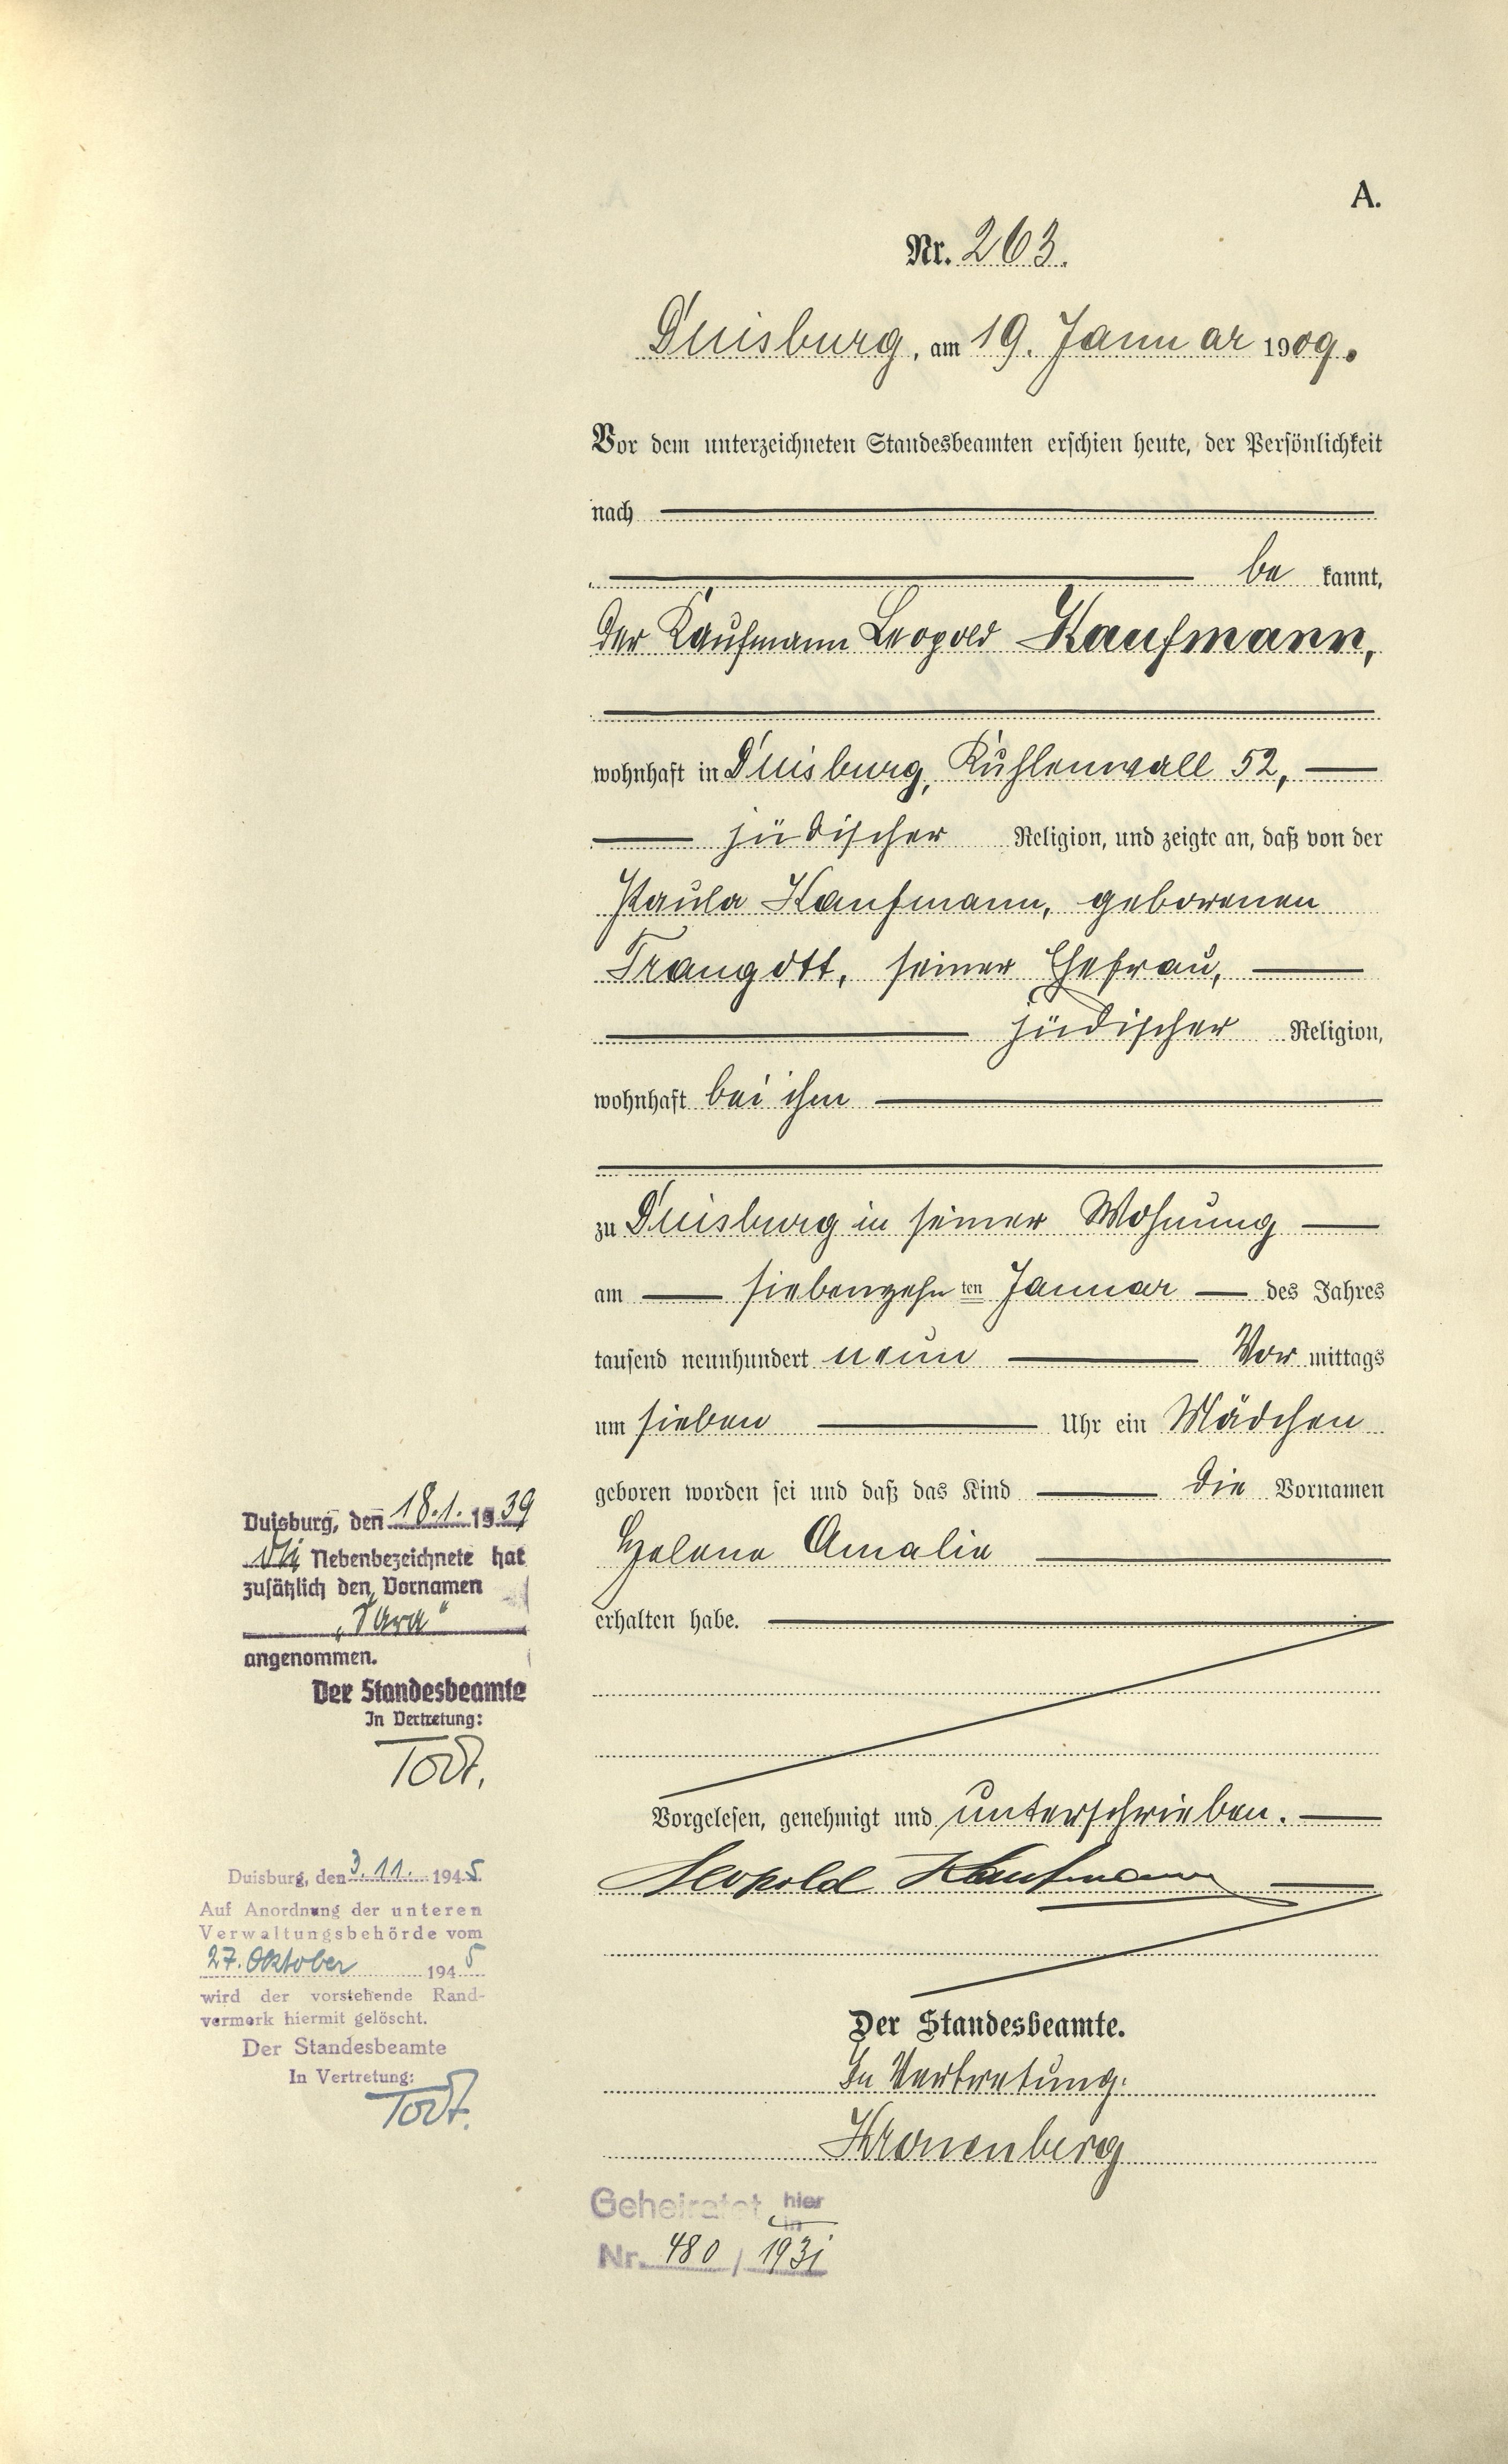 A.
Nr. 263.
Duisburg, am 19. Januar 1909.
Vor dem unterzeichneten Standesbeamten erschien heute, der Persönlichkeit
nach
be kannt,
der Kaufmann Leopold Kaufmann,
wohnhaft in Duisburg, Kuhlenwall 52,
jüdischer Religion, und zeigte an, daß von der
Paula Kaufmann, geborenen
Traugott, seiner Ehefrau,
jüdischer Religion,
wohnhaft bei ihm
zu Duisburg in seiner Wohnung
am siebenzehn ten Januar des Jahres
tausend neunhundert neun Vor mittags
um sieben Uhr ein Mädchen
geboren worden sei und daß das Kind die Vornamen
Helene Amalie
erhalten habe.
Vorgelesen, genehmigt und unterschrieben.
Leopold Kaufmann
Der Standesbeamte.
In Vertretung:
Kronenberg
Duisburg, den 18.1. 1939
Die Nebenbezeichnete hat
zusätzlich den Vornamen
„Sara"
angenommen.
Der Standesbeamte
In Vertretung:
Todt.
Duisburg, den 3.11. 1945
Auf Anordnung der unteren
Verwaltungsbehörde vom
27. Oktober 1945
wird der vorstehende Rand-
vermerk hiermit gelöscht.
Der Standesbeamte
In Vertretung:
Todt.
Geheiratet hier
in
Nr. 480 / 1931